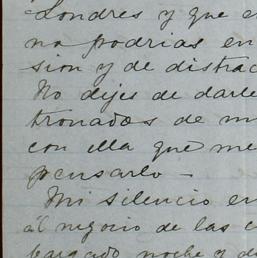 Londres y que e
no podrias en
sion y de distrac
No dijes de darle
tronados de m
con ella que me
pensarlo -
Mi silencio en
al negocio de las c
cargado noche y d